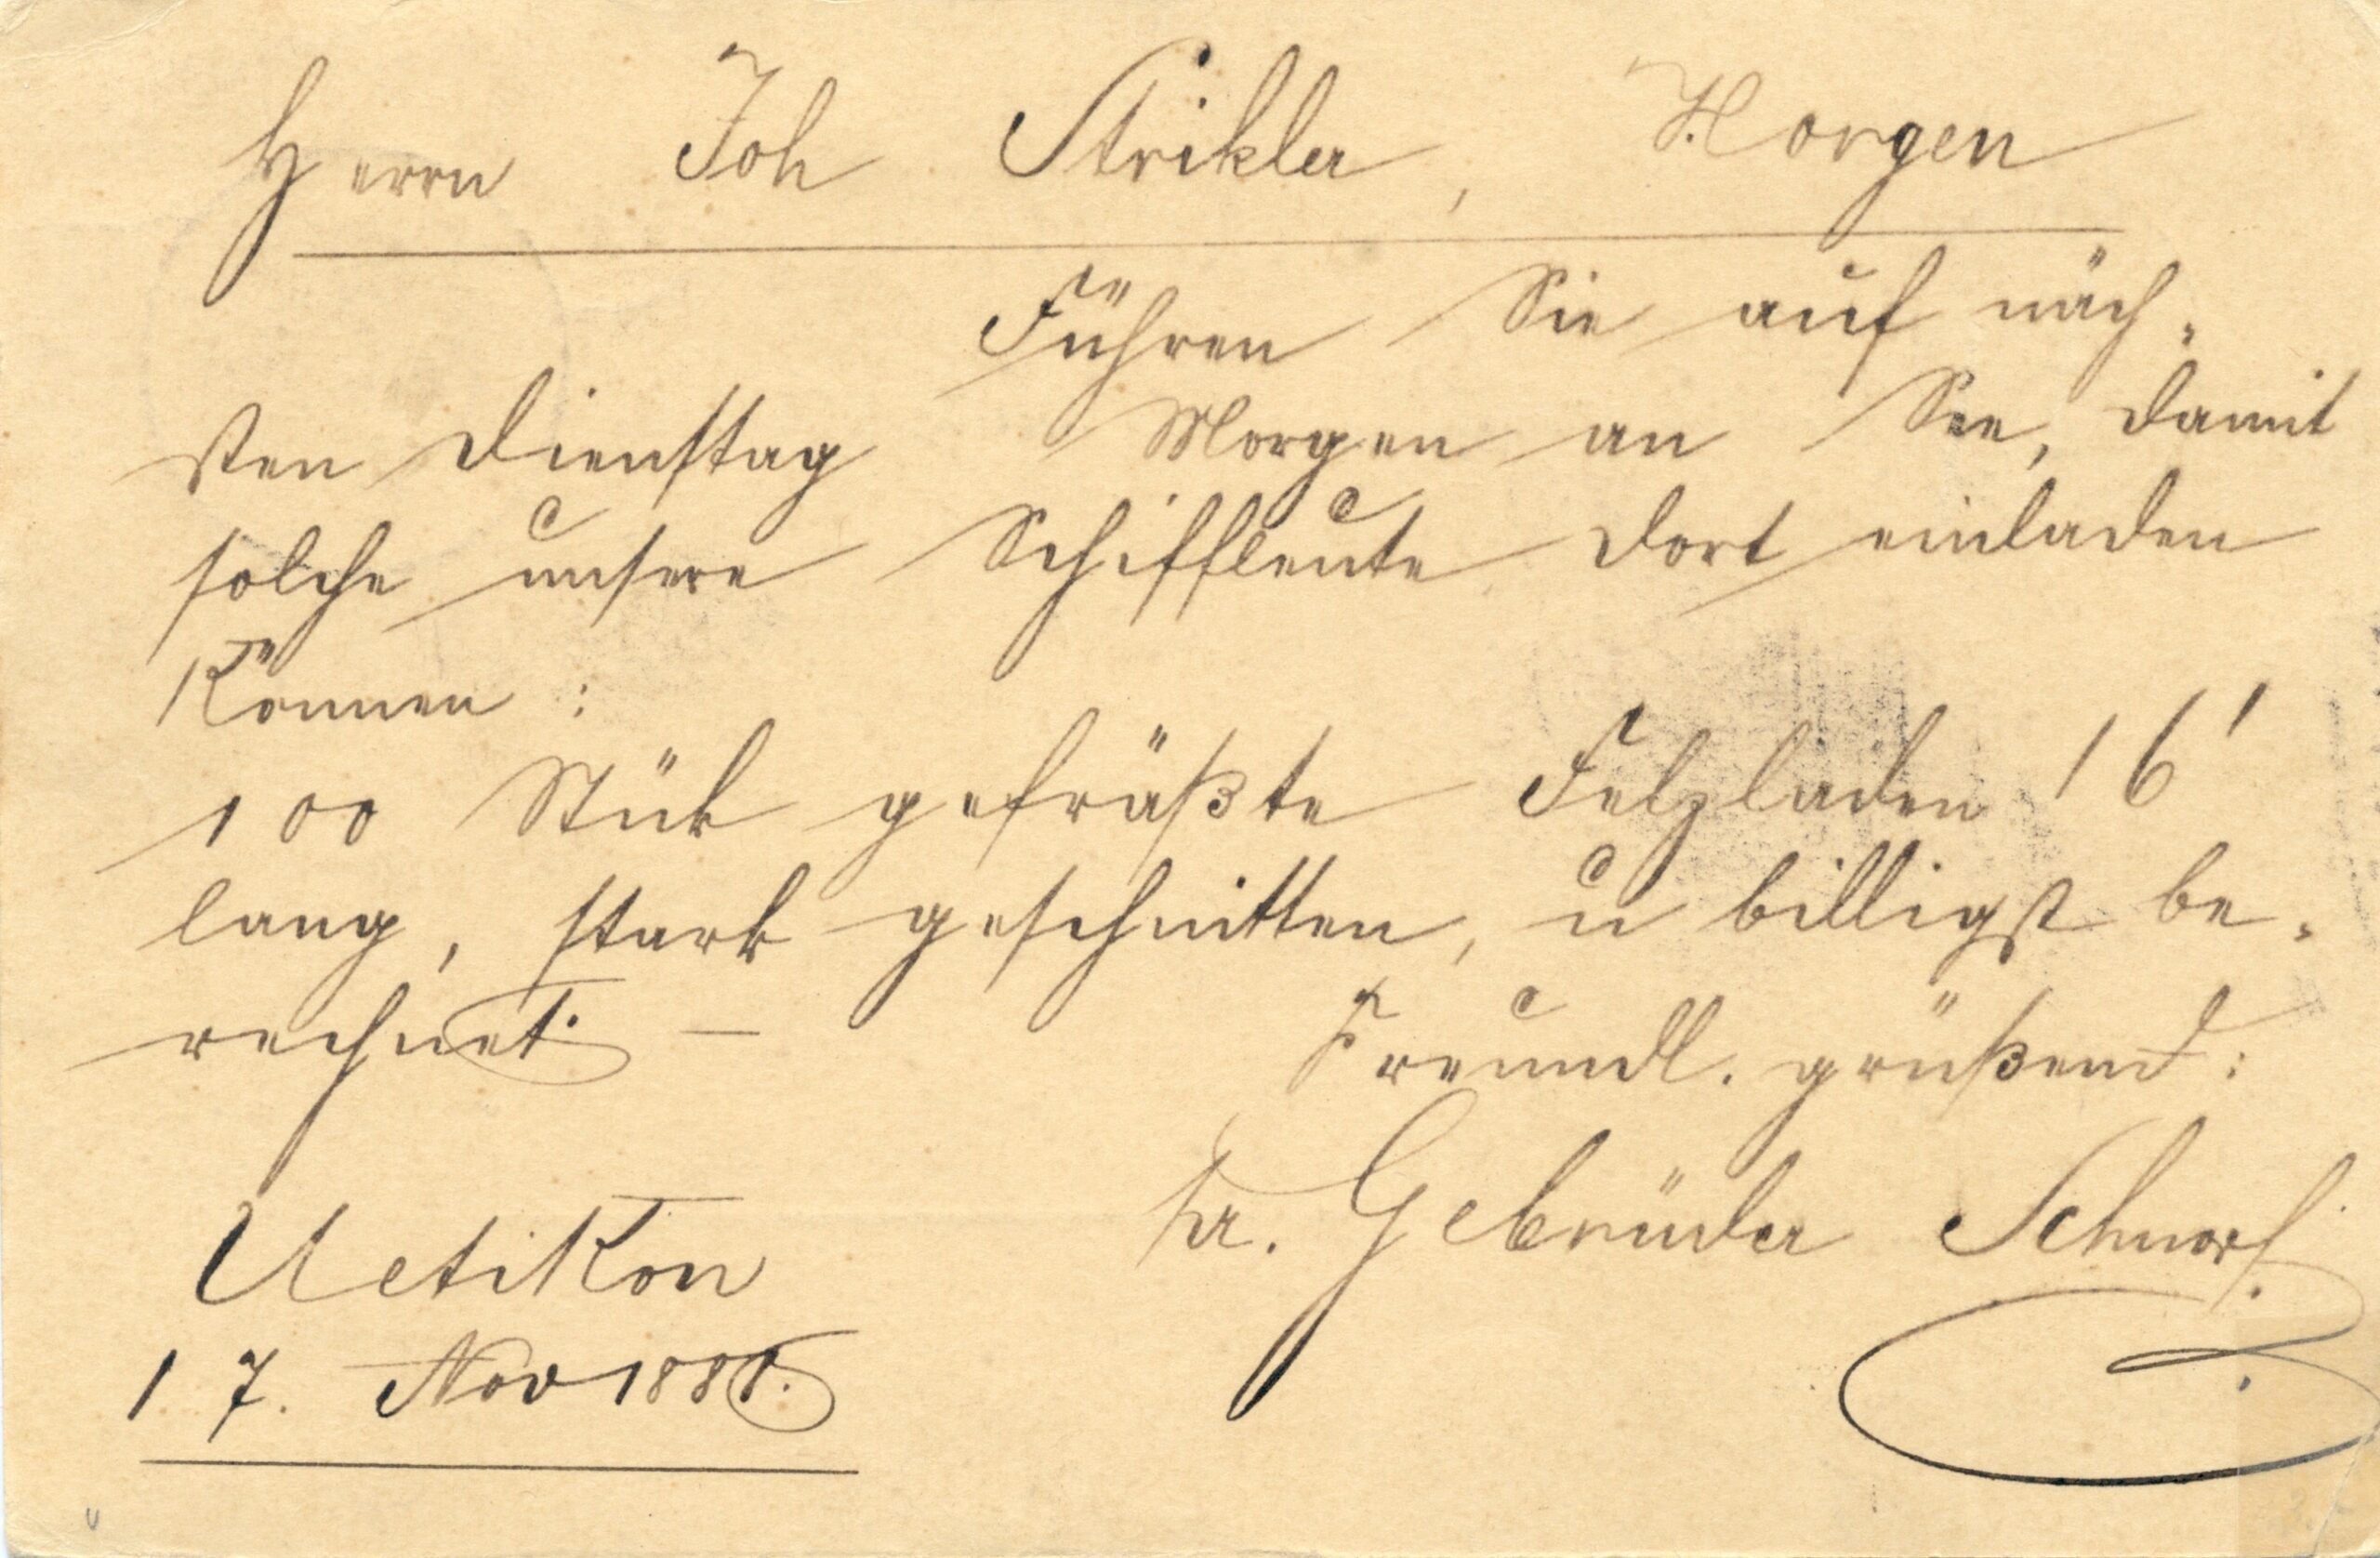 Herrn Joh Strikler, Horgen
Führen Sie auf näch-
sten Dienstag Morgen an See, damit
solche unsere Schiffleute dort einladen
können:
100 Stük gefräßte Felzladen 16'
lang, stark geschnitten, u billigst be-
rechnet. —
Freundl. grüßend:
pr. Gebrüder Schnorf.
Uetikon
17. Nov 1888.